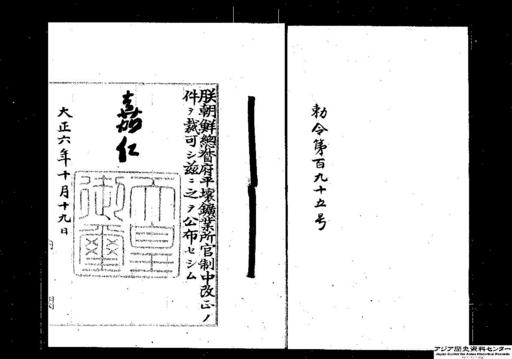 勅令第百九十五号
朕朝鮮總督府平壤鑛業所官制中改正ノ
件ヲ裁可シ茲ニ之ヲ公布セシム
嘉仁
天皇
御璽
大正六年十月十九日
アジア歴史資料センター
Japan Center for Asian Historical Records